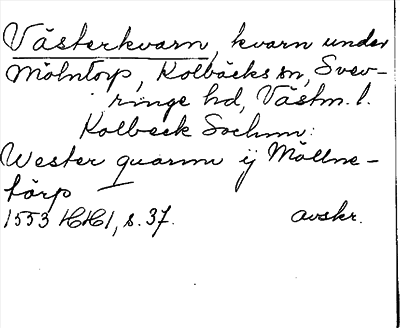 Västerkvarn, kvarn under
Mölntorp, Kolbäcks sn, Snev-
ringe hd, Västm. l.
Kolbeck Sochnn:
Wester quarnn ij Möllne-
törp
1553 HH1, s. 37. avskr.